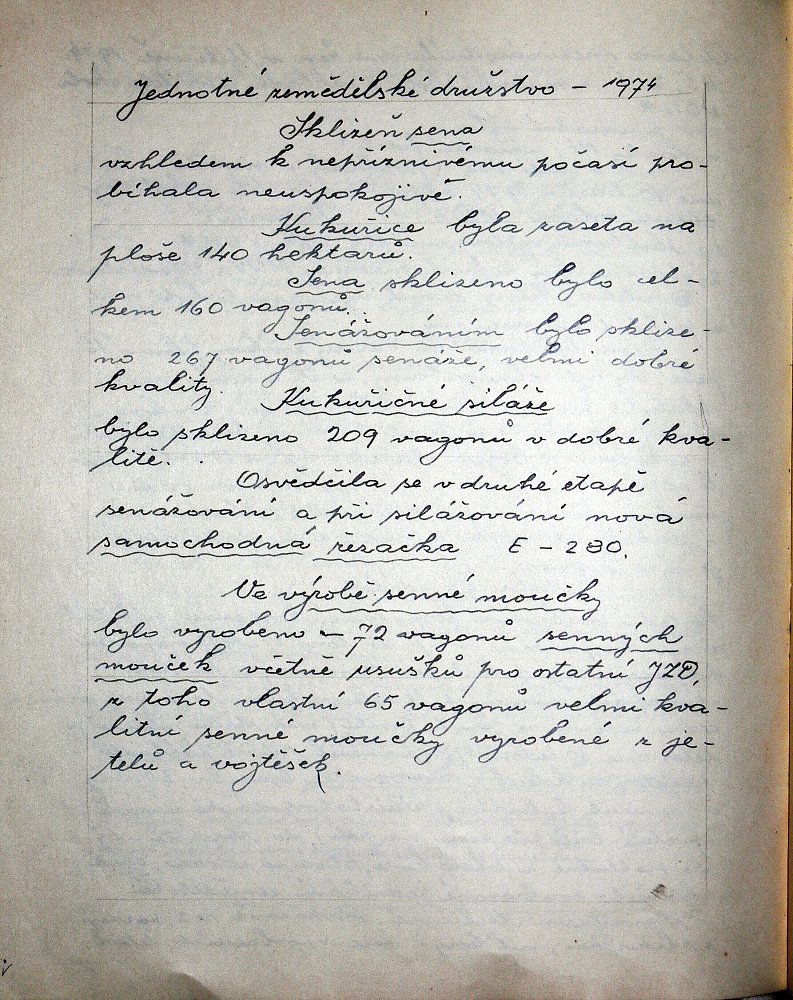 Jednotné zemědělské družstvo – 1974
Sklizeň sena
vzhledem k nepříznivému počasí pro-
bíhala neuspokojivě.
Kukuřice byla zaseta na
ploše 140 hektarů.
Sena sklizeno bylo cel-
kem 160 vagonů.
Senážováním bylo sklize-
no 267 vagonů senáže, velmi dobré
kvality.
Kukuřičné siláže
bylo sklizeno 209 vagonů v dobré kva-
litě.
Osvědčila se v druhé etapě
senážování a při silážování nová
samochodná řezačka E – 280.
Ve výrobě senné moučky
bylo vyrobeno – 72 vagonů senných
mouček včetně úsušků pro ostatní JZD,
z toho vlastní 65 vagonů velmi kva-
litní senné moučky vyrobené z je-
telů a vojtěšek.